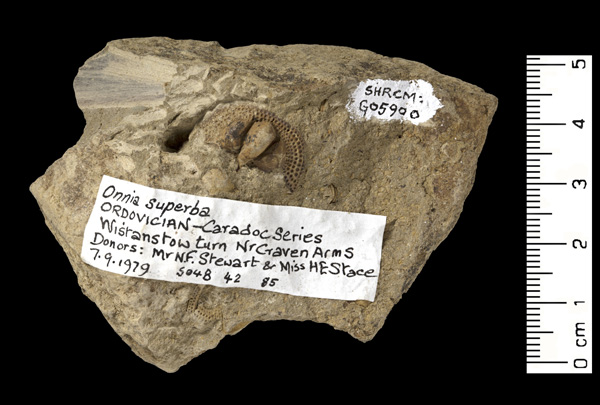 SHRCM:
G05900
Onnia superba
ORDOVICIAN-Caradoc Series
Wistanstow turn Nr Craven Arms
Donors: Mr N.F. Stewart & Miss H E Stace
7.9.1979 SO4B 42 85
5
4
3
2
1
0 cm